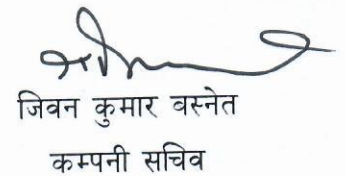 जिवन कुमार बस्नेत
कम्पनी सचिव